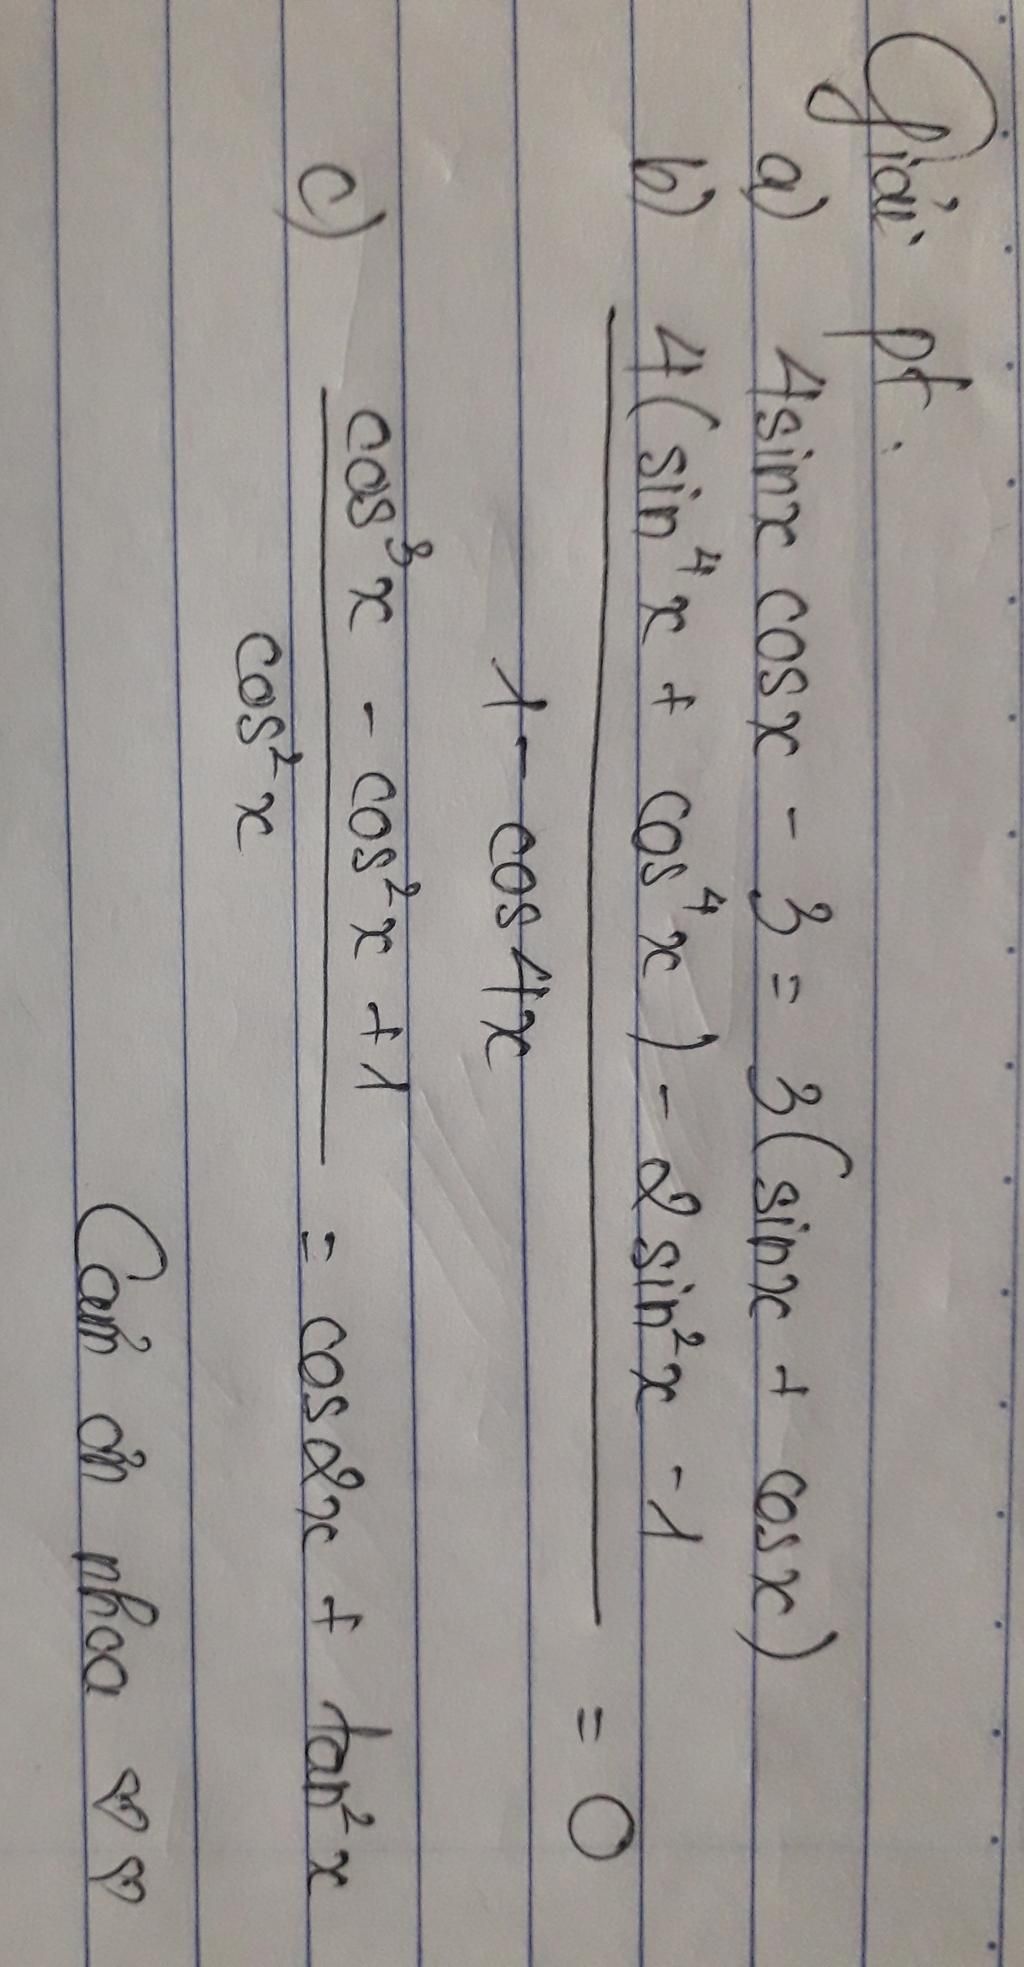 Giải pt:
a) 4sinx cosx - 3 = 3(sinx + cosx)
b) 4(sin⁴x + cos⁴x) - 2sin²x - 1
1 - cos4x
= 0
c) cos³x - cos²x + 1
cos²x
= cos2x + tan²x
Cảm ơn nhoa ♡♡